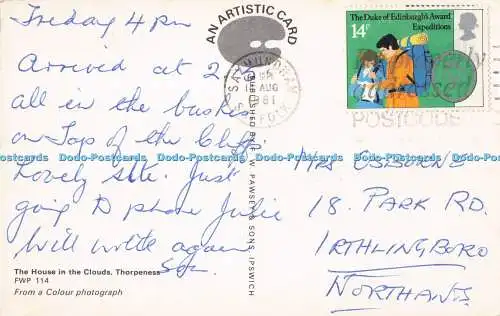 Friday 4 pm
Arrived at 2.
all in the bushes
on Top of the Cliff.
Lovely site. Just
going to phone Julie
Will write again
The House in the Clouds, Thorpeness
FWP 114
From a Colour photograph
AN ARTISTIC CARD
PUBLISHED BY F. W. PAWSEY & SONS, IPSWICH
SAXMUNDHAM
AUG
SUFFOLK
The Duke of Edinburgh's Award
Expeditions
14P
POSTCODE
Mrs OSBORNE
18. PARK RD.
IRTHLINGBORO
NORTHANTS
Dodo-Postcards Dodo-Postcards Dodo-Postcards Dodo-Postcards Dodo-Postcards Dodo-Postcards Dodo-Postcards